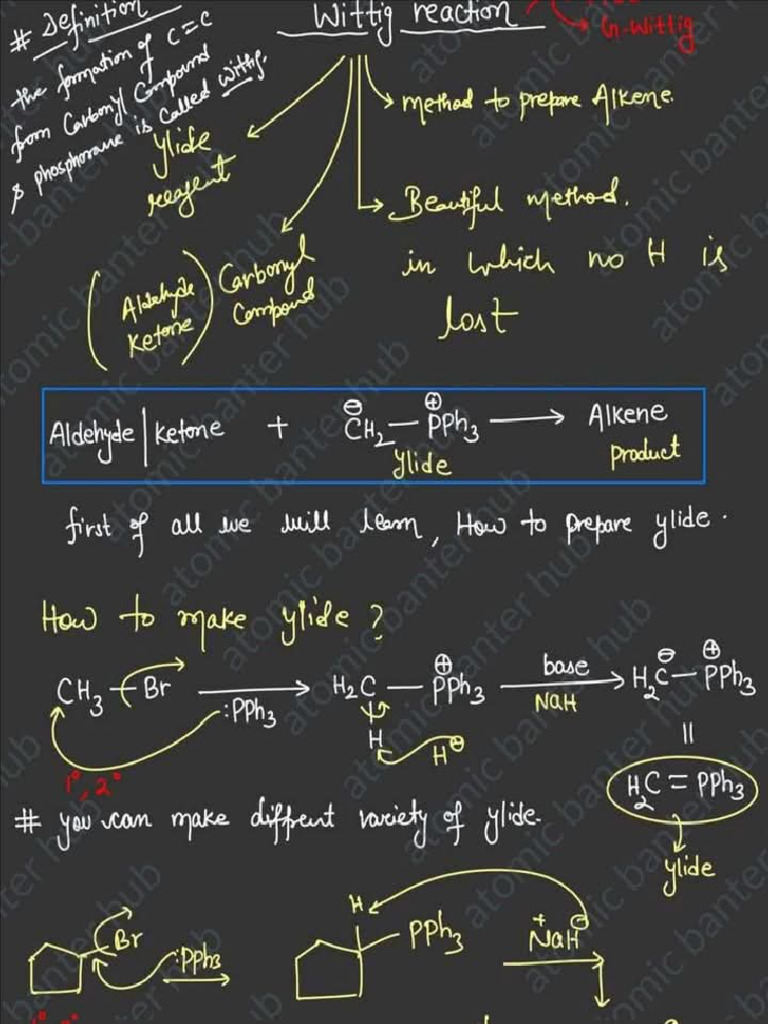 # Definition
the formation of C=C
from Carbonyl Compound
& phosphorane is called Wittig.
Wittig reaction
G-Wittig
method to prepare Alkene.
ylide
reagent
Beautiful method.
in which no H is
lost
(Aldehyde
Ketone)
Carbonyl
Compound
Aldehyde | ketone + ⊖CH2 — ⊕PPh3 → Alkene
ylide
product
first of all we will learn, How to prepare ylide.
How to make ylide?
CH3 — Br
:PPh3
H2C — ⊕PPh3
H
H⊖
base
NaH
H2C⊖ — ⊕PPh3
=
1°, 2°
H2C = PPh3
ylide
# you can make diffrent variety of ylide.
Br
:PPh3
H
PPh3
+ ⊖
NaH
atomic banter hub